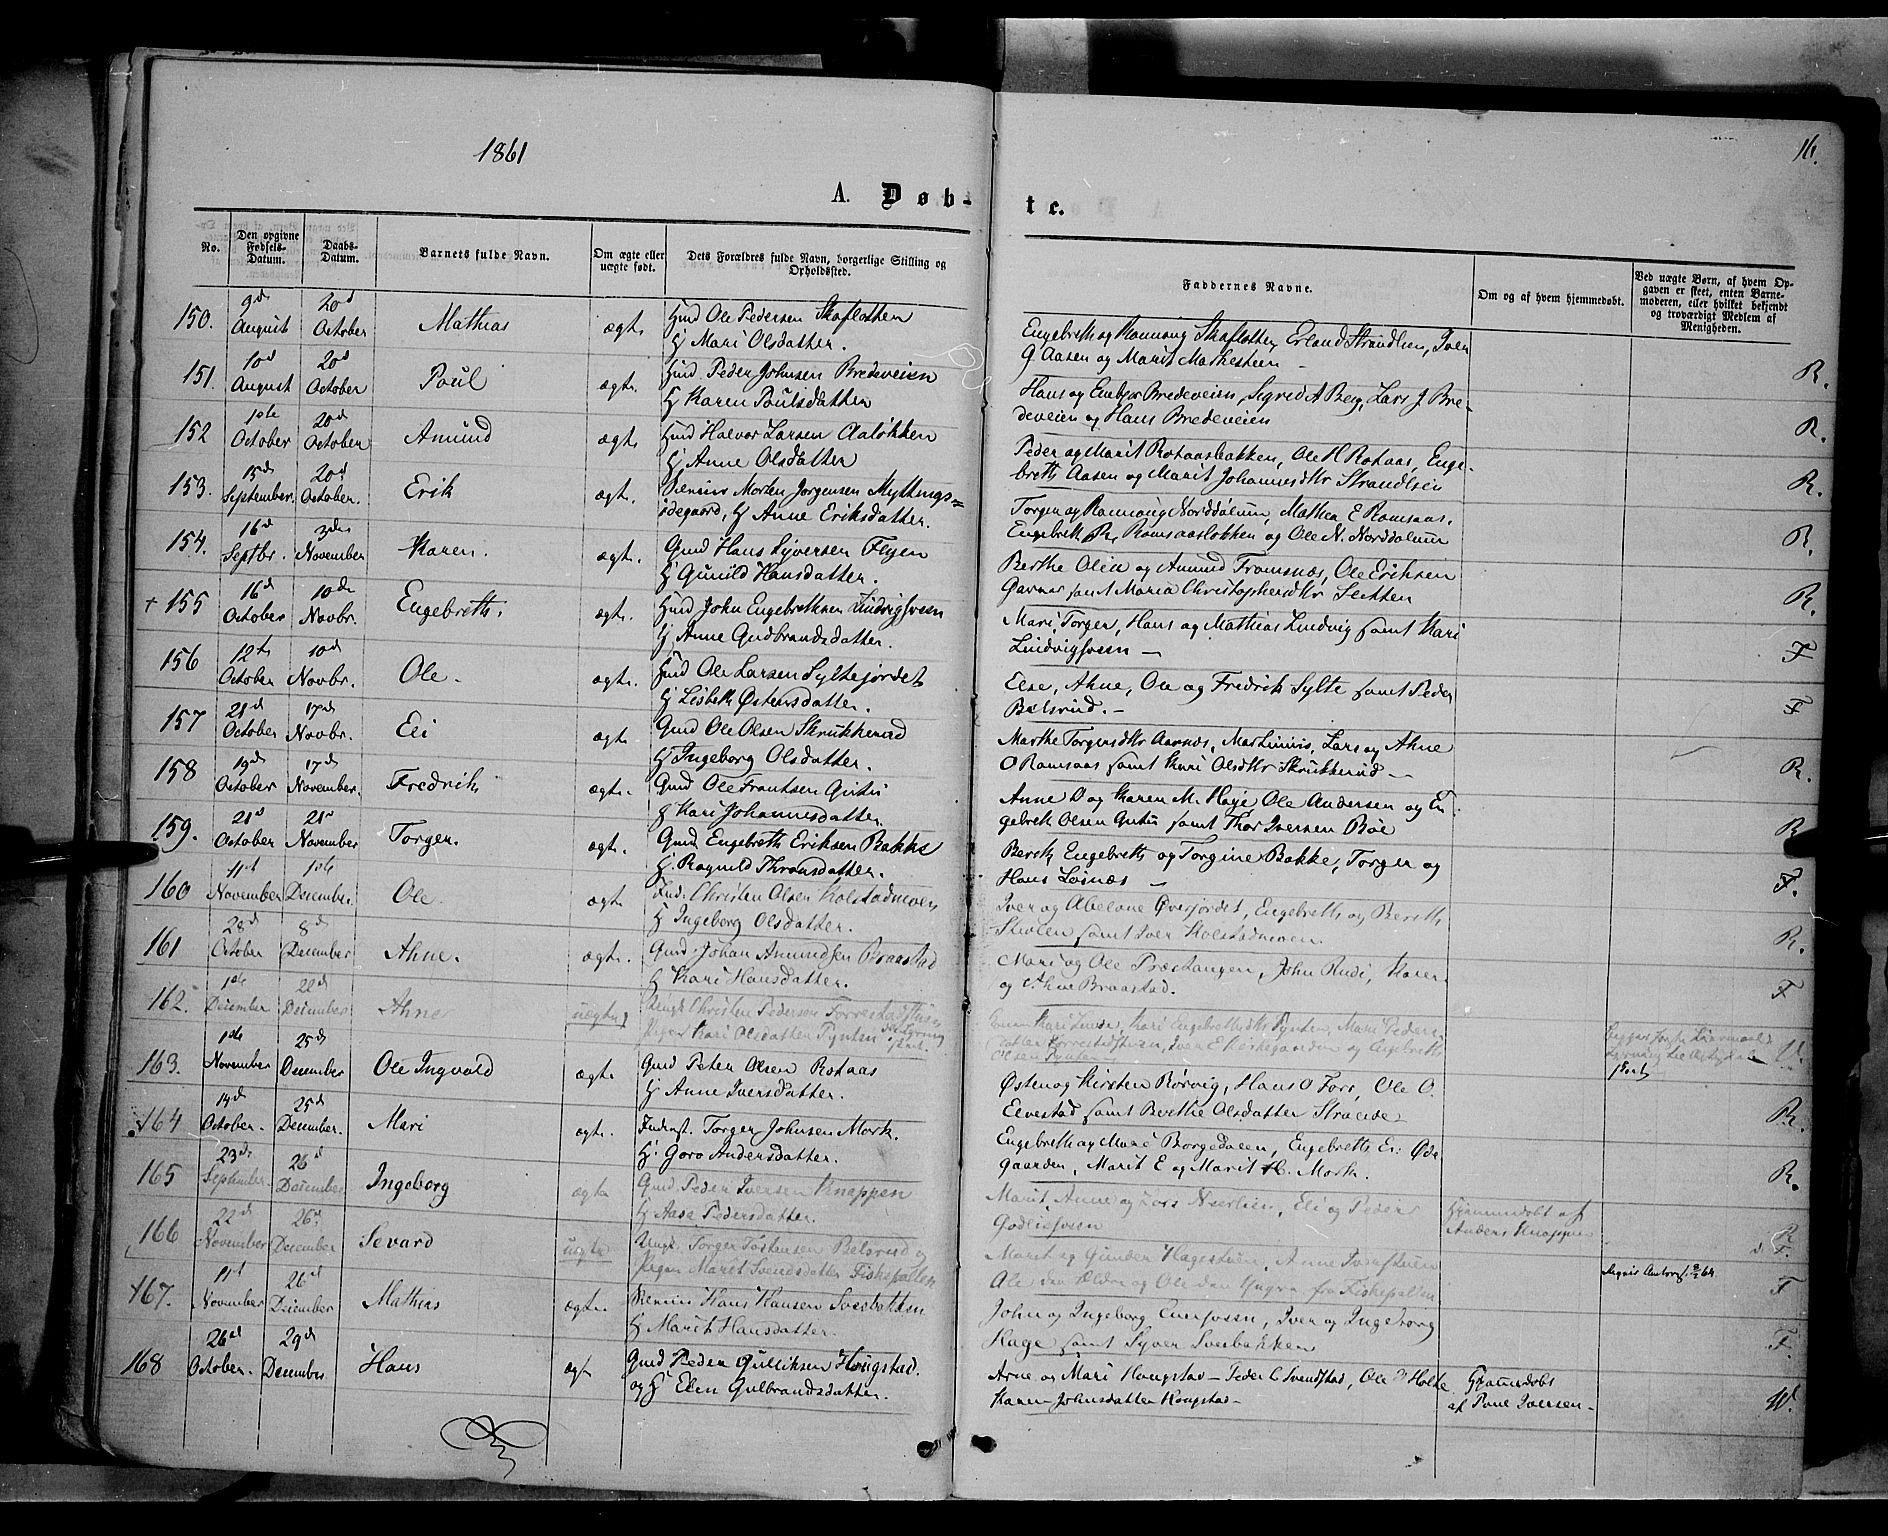 1861
16.
A. Døb-
te.
No.
Den opgivne Fødsels-Datum.
Daabs-Datum.
Barnets fulde Navn.
Om ægte eller uægte født.
Dets Forældres fulde Navn, borgerlige Stilling og Opholdssted.
Faddernes Navne.
Om og af hvem hjemmedøbt.
Ved uægte Børn, af hvem Opgaven er skeet, enten Barnemoderen, eller hvilket bekjendt og troværdigt Medlem af Menigheden.
150. 9d August 20d October Mathias ægte. Huusd Ole Pedersen Skafløtten
H Mari Olsdatter.
Engebreth og Rønnoug Skafløtten, Erland Strandlien, Iver
G Aasen og Marit Mathestuen - R.
151. 10d August 20d October Poul ægte. Huusd Peder Johnsen Bredeveien
H Karen Poulsdatter
Hans og Embjør Bredeveien, Sigrid A Berg, Lars J. Bre-
deveien og Hans Bredeveien R.
152 1ste October 20d October Amund ægte. Huusd Halvor Larsen Aaløkken
H Anne Olsdatter
Peder og Marit Rotaasbakken, Ole H Rotaas, Enge-
breth Aasen og Marit Johannesdtr Strandlien R.
153. 15de September. 20d October. Erik ægte. Morten Jørgensen Myttings-
ødegaard, H Anne Eriksdatter.
Torger og Rønnoug Norddalum, Mathea E Romsaas,
Engebreth R. Romsaasløkken og Ole N. Norddalum R.
154. 16d Septbr. 3die November Karen. ægte. Gmd Hans Syversen Flyen
H Gunild Hansdatter.
Berthe Olia og Amund Tromsnæs, Ole Eriksen
samt Maria Christophersdtr Sletten R.
+ 155 16d October 10de Novbr. Engebreth. ægte. Huusd John Engebrethsen Lindvigsveen
H Anne Gudbrandsdatter.
Mari, Torger, Hans og Mathias Lindvig samt Kari
Lindvigsveen - F
156 12te October 10d Novbr. Ole. ægte. Huusd Ole Larsen Syltejordet
H Lisbeth Østensdatter.
Else, Ahne, Ole og Fredrik Sylte samt Peder
Bælsrud. - F
157 21d October 17de Novbr. Eli ægte Gmd Ole Olsen Skrukkerud
H Ingeborg Olsdatter.
Marthe Torgersdtr Aarnæs, Martinius, Lars og Ahne
O Romsaas samt Kari Olsdtr Skrukkerud - R.
158 19d October 17d November. Fredrik ægte. Gmd Ole Frantsen Guttu
H Kari Johannesdatter.
Anne O og Karen M. Hage, Ole Andersen og En-
gebreth Olsen Guttu samt Thor Iversen Bøe R
159. 21d October 21d November Torger. ægte. Gmd Engebreth Eriksen Bakke
H Ragnild Thronsdatter.
Bereth, Engebreth og Torgine Bakke, Torger og
Hans Løsnæs - F.
160 11te November 1ste December. Ole. ægte Ind. Christen Olsen Kolstadmoen
H Ingeborg Olsdatter.
Iver og Abelone Øverjordet, Engebreth og Bereth
Skolen samt Iver Kolstadmoen. R.
161 28d October 8d December Ahne. ægte. Gmd Johan Amundsen Braastad
H Kari Hansdatter.
Mari og Ole Præstangen, John Rudi, Karen
og Ahne Braastad. F
162. 1ste December 22d December Ahne uægte Ungk Christen Pedersen Forrestadstuen
Pigen Kari Olsdatter Pynten
Kari Linde, Kari Engebrethsdtr Pynten, Mari Peders-
datter Forrestadstuen, Iver E Kirkegaarden og Engebreth
Olsen Pynten - V.
163. 1ste November 25d December Ole Ingvald ægte Gmd Peter Olsen Rotaas
H Anne Iversdatter.
Østen og Kirsten Rørvig, Hans O Forr, Ole O.
Elvestad samt Berthe Olsdatter Strande R.
164 14d October. 25d December. Mari ægte. Inderst. Torger Johnsen Mork.
H. Goro Andersdatter.
Engebreth og Mari Borgedalen, Engebreth Er: Øde-
gaarden, Marit E og Marit H. Mork. R.
165 23de September. 26d December Ingeborg ægte Gmd Peder Iversen Knappen
H Aase Pedersdatter.
Marit, Anne og Lars Neerlien, Eli og Peder
Godliesveen Hjemmedøbt af
Anders Knappen R
166 22d November 26d. December Sevard uægte Ungk. Torger Tostensen Bælsrud og
Pigen Marit Svendsdatter Fiskepallen
Marit og Gunder Hagestuen, Anne Sveestuen
Ole den Ældre og Ole den Yngre fra Fiskepallen F.
167. 11te November 26d December Mathias ægte. Hans Hansen Sveebakken
H Marit Hansdatter.
John og Ingeborg Enersveen, Iver og Ingeborg
Hage samt Syver Sveebakken F
168 26d October. 29d December. Hans ægt Gmd Peder Gulliksen Kongstad.
og H Elen Gulbrandsdatter.
Arne og Mari Kongstad - Peder C Svendstad, Ole P Holte
Karen Johnsdatter Kongstad - Hjemmedøbt
af Poul Iversen - W.